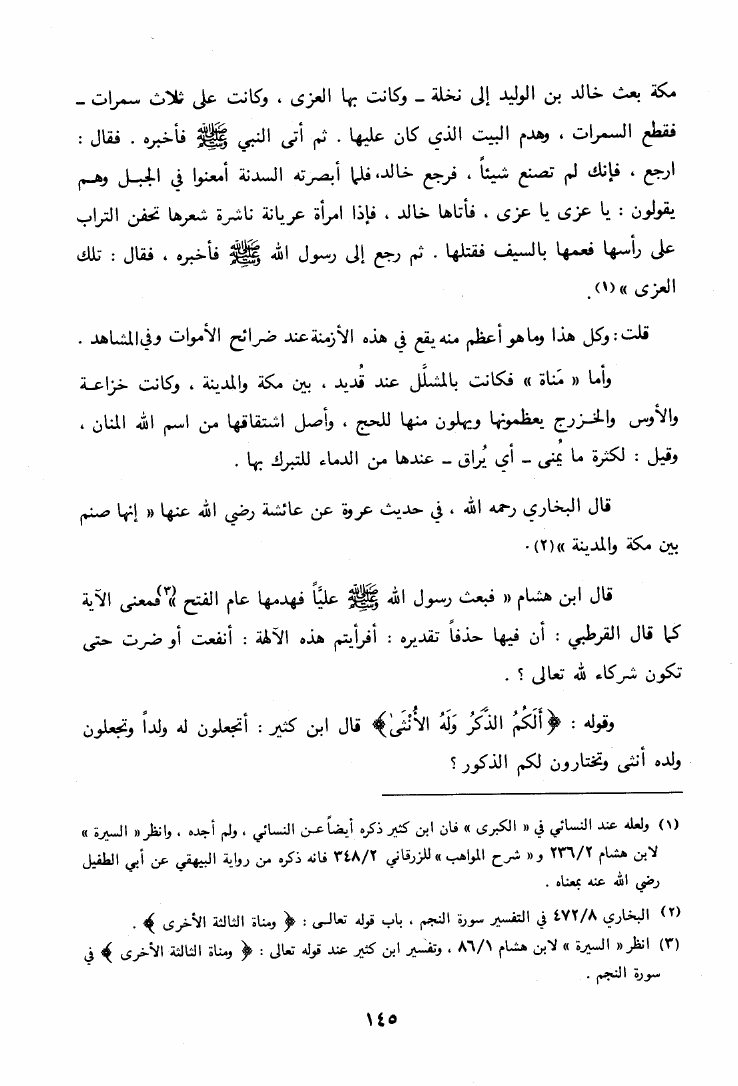 مكة بعث خالد بن الوليد إلى نخلة ــ وكانت بها العزى ، وكانت على ثلاث سمرات ــ
فقطع السمرات ، وهدم البيت الذي كان عليها . ثم أتى النبي ﷺ فأخبره . فقال :
ارجع ، فإنك لم تصنع شيئاً ، فرجع خالد، فلما أبصرته السدنة أمعنوا في الجبل وهم
يقولون : يا عزى يا عزى ، فأتاها خالد ، فإذا امرأة عريانة ناشرة شعرها تحفن التراب
على رأسها فعمها بالسيف فقتلها . ثم رجع إلى رسول الله ﷺ فأخبره ، فقال : تلك
العزى »(١).
قلت : وكل هذا وما هو أعظم منه يقع في هذه الأزمنة عند ضرائح الأموات وفي المشاهد .
وأما « مَناة » فكانت بالمشلَّل عند قُديد ، بين مكة والمدينة ، وكانت خزاعة
والأوس والخزرج يعظمونها ويهلون منها للحج ، وأصل اشتقاقها من اسم الله المنان ،
وقيل : لكثرة ما يُمنى ــ أي يُراق ــ عندها من الدماء للتبرك بها .
قال البخاري رحمه الله ، في حديث عروة عن عائشة رضي الله عنها « إنها صنم
بين مكة والمدينة »(٢).
قال ابن هشام « فبعث رسول الله ﷺ عليّاً فهدمها عام الفتح »(٣) فمعنى الآية
كما قال القرطبي : أن فيها حذفاً تقديره : أفرأيتم هذه الآلهة : أنفعت أو ضرت حتى
تكون شركاء لله تعالى ؟ .
وقوله : ﴿ أَلَكُمُ الذَّكَرُ وَلَهُ الأُنْثَىٰ﴾ قال ابن كثير : أتجعلون له ولداً وتجعلون
ولده أنثى وتختارون لكم الذكور ؟
(١) ولعله عند النسائي في « الكبرى » فان ابن كثير ذكره أيضاً عن النسائي ، ولم أجده ، وانظر « السيرة »
لابن هشام ٢٣٦/٢ و« شرح المواهب » للزرقاني ٣٤٨/٢ فانه ذكره من رواية البيهقي عن أبي الطفيل
رضي الله عنه بمعناه .
(٢) البخاري ٤٧٢/٨ في التفسير سورة النجم ، باب قوله تعالى : ﴿ ومناة الثالثة الأخرى ﴾ .
(٣) انظر « السيرة » لابن هشام ٨٦/١ ، وتفسير ابن كثير عند قوله تعالى : ﴿ ومناة الثالثة الأخرى ﴾ في
سورة النجم .
١٤٥